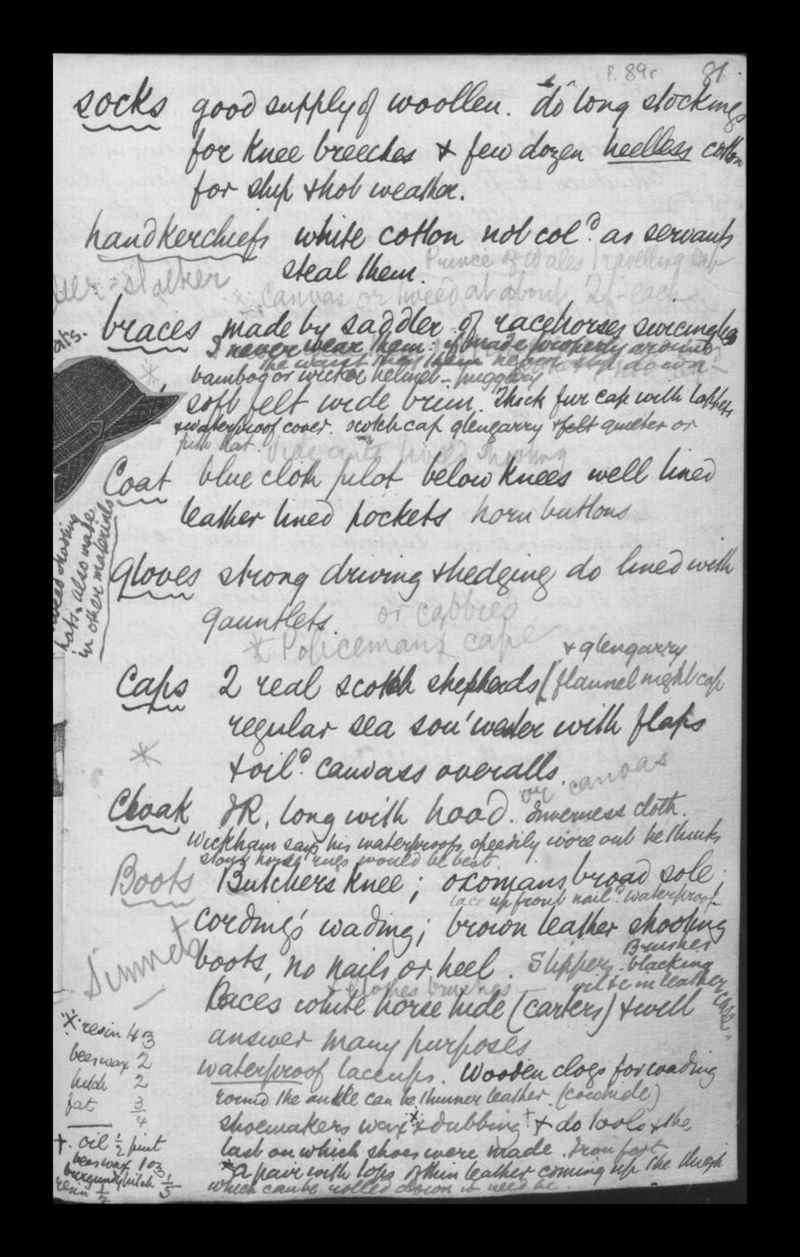 f. 89r 81
socks good supply of woollen. do long stockings
for knee breeches & few dozen heelless cotton
for ship & hot weather.
handkerchiefs white cotton not col.d as servants
steal them.
Prince of Wales Travelling
Deer-stalker
canvas or tweed at about 2/- each
braces made by saddler of racehorses surcingles
I never wear them: if made properly around
the waist they
bamboo or wicker helmet - puggery
hats.
soft felt wide brim. Thick fur cap with lappets
& waterproof cover. scotch cap glengarry & felt quieter or
pith hat.
Coat blue cloth pilot below knees well lined
leather lined pockets horn buttons
tweed shooting
hats also made
in other materials
gloves strong driving & hedging do lined with
gauntlets. or cabbies
* Policemans cape
& glengarry
Caps 2 real scotch shepherds / flannel night cap
regular sea sou'wester with flaps
* & oil.d canvass overalls.
or canvas
Cloak IR. long with hood. Inverness cloth.
Wickham says his waterproofs speedily wore out he thinks
stout horse rugs would be best.
Boots Butchers knee; oxomans broad sole.
lace up front nail.d waterproof
cording's wading; brown leather shooting
boots, no nails or heel. Slippers. Brushes
blacking
& clothes brushes
oil &c in leather case.
Laces white horse hide (carters) & will
answer many purposes
waterproof laceups. Wooden clogs for wading
round the ankle can be thinner leather. (cowhide)
shoemakers wax * & dubbing † & do tools & the
last on which shoes were made. Iron foot
* a pair with tops of thin leather coming up the thigh
which can be rolled down if need be.
* resin 4 oz
beeswax 2
pitch 2
fat 3/4
† oil 1/2 pint
beeswax 1 oz
burgundy pitch 1/5
resin 1/2